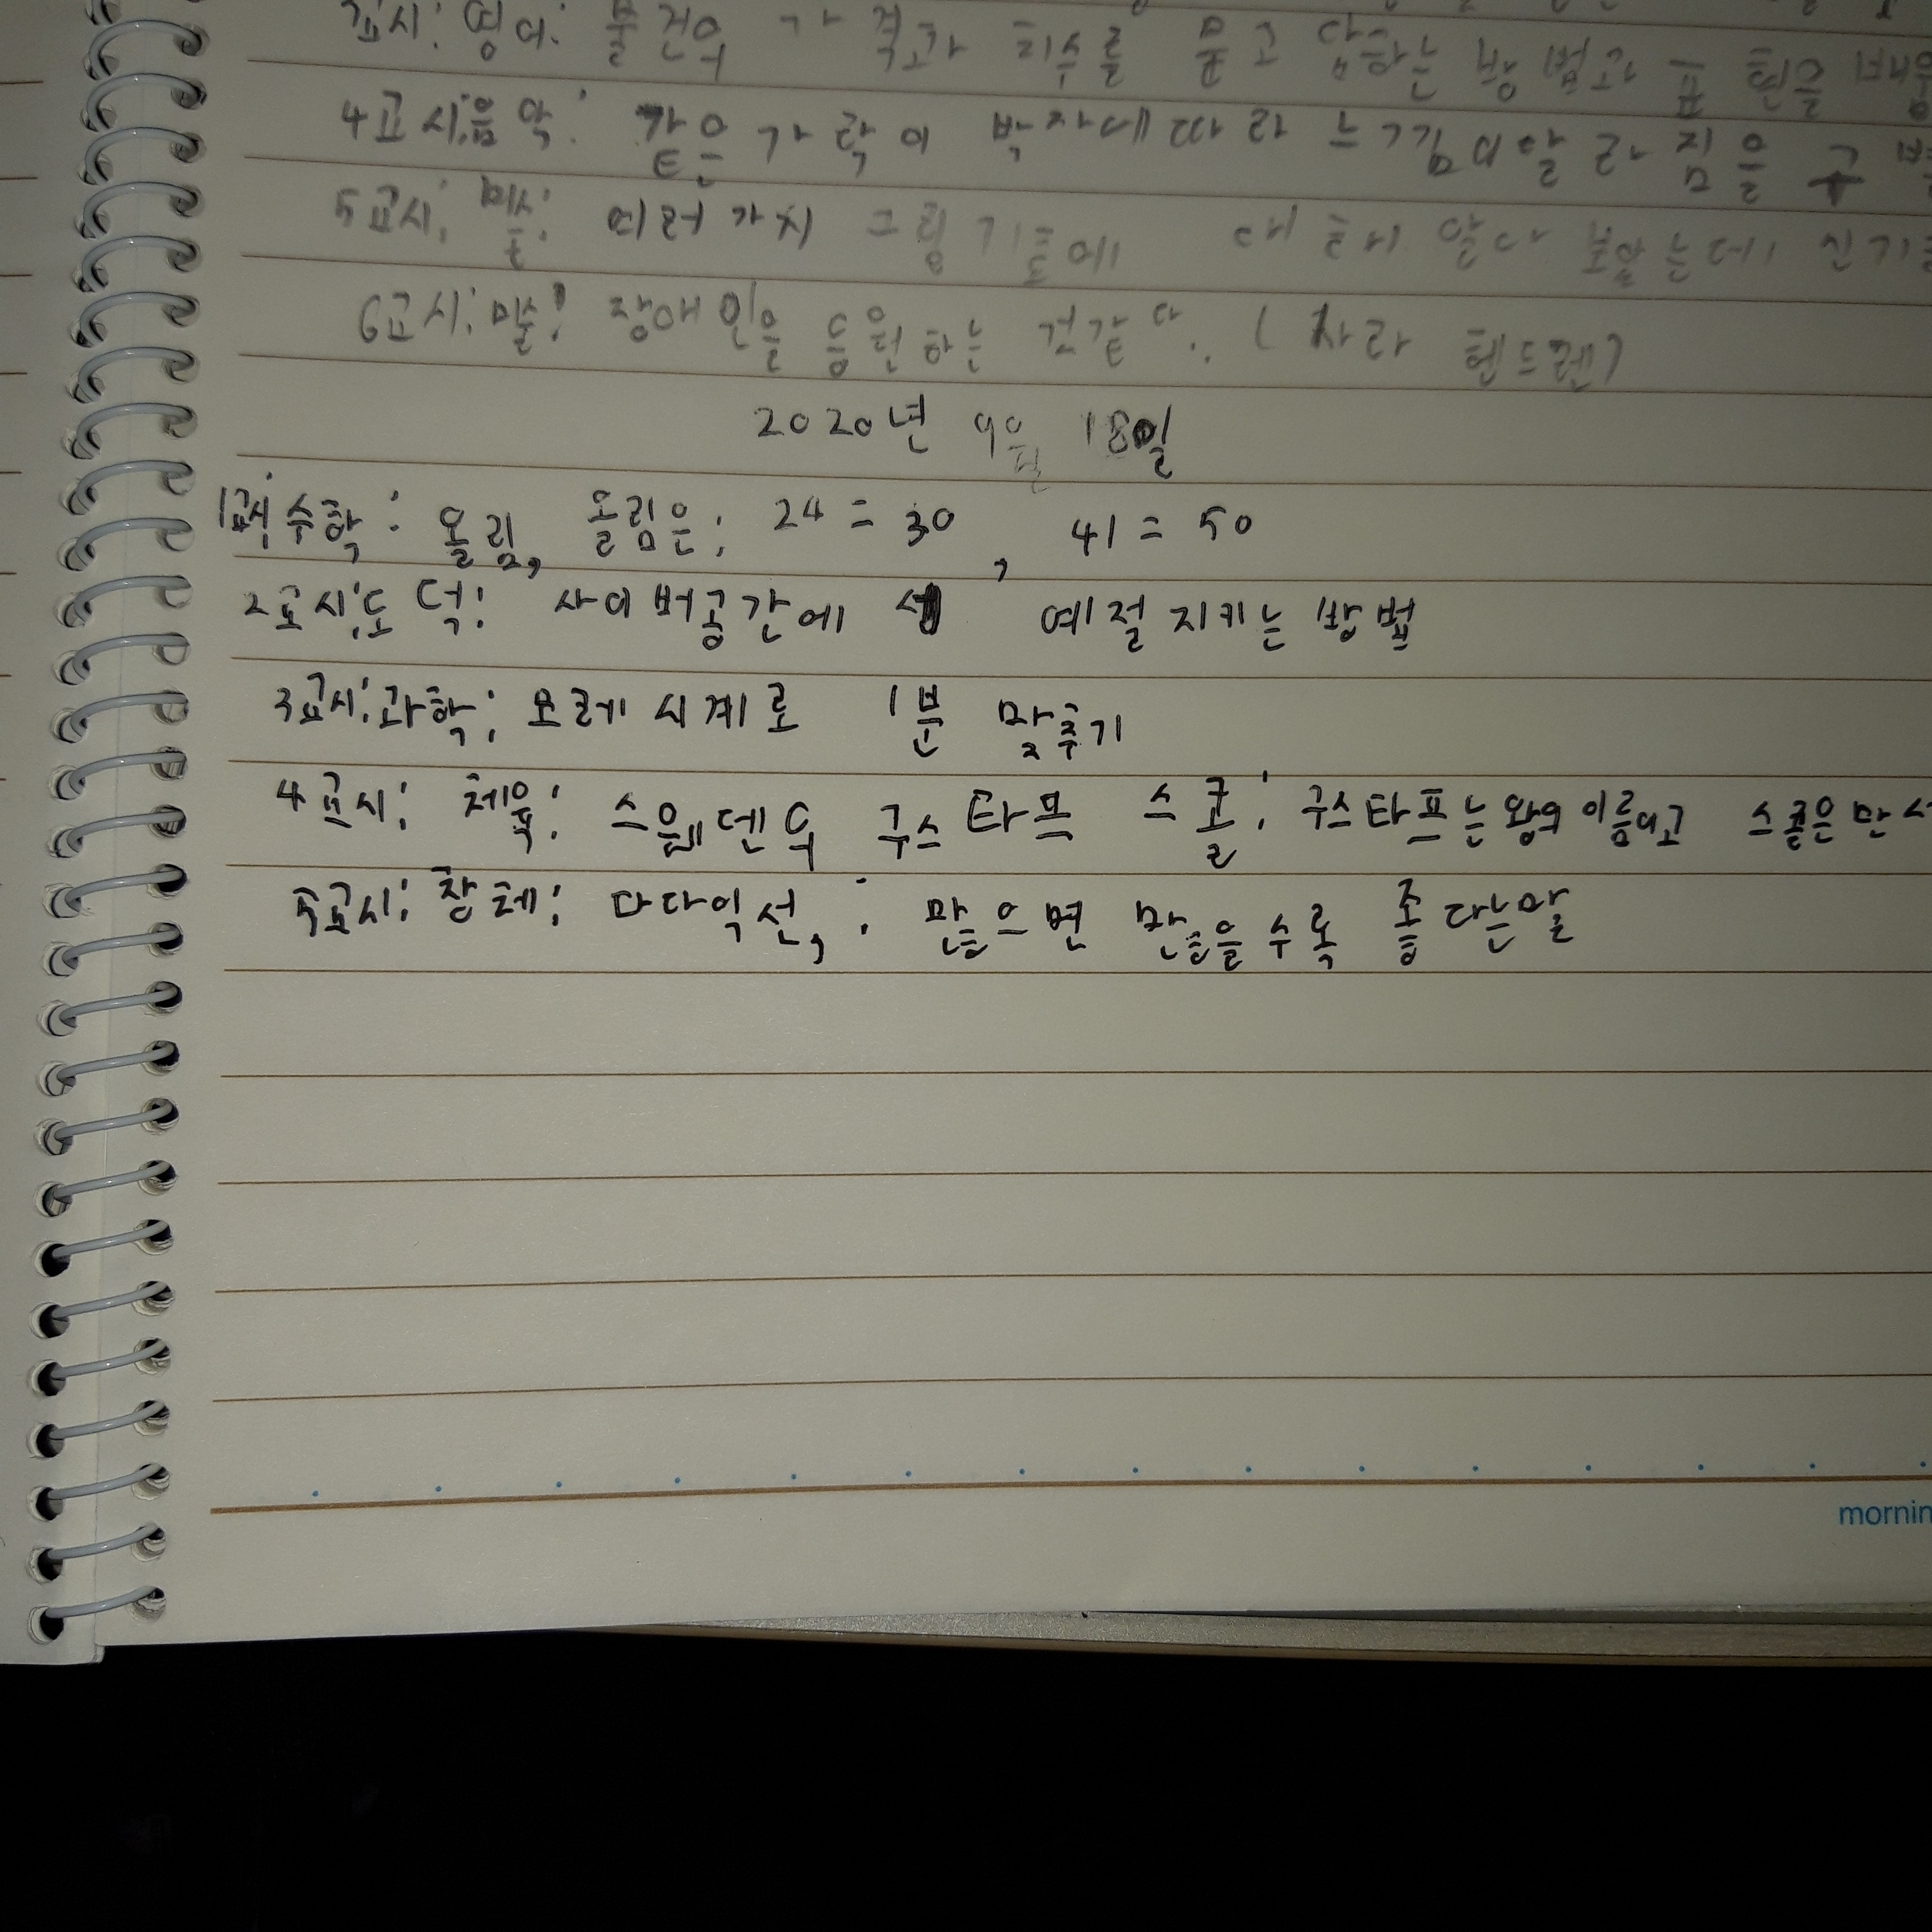 교시: 영어: 물건의 가격과 회수를 묻고 답하는 방법과 표현을
4교시:음악: 같은 가락이 박자에따라 느낌이달라짐을
5교시: 여러가지 그림기도에 대해서 알아 보았는데
6교시:미술: 장애인을 응원하는 것같다. (사라 헨드렌)
2020년 9월 18일
1교시 수학: 올림, 올림은: 24=30, 41=50
2교시:도덕: 사이버공간에서 예절지키는 방법
3교시:과학: 모레시계로 1분 맞추기
4교시: 체육: 스웨덴의 구스타프 스콜: 구스타프는왕의이름이고 스콜은만
5교시: 창체: 다다익선,: 많으면 많을수록 좋다는말
mornin